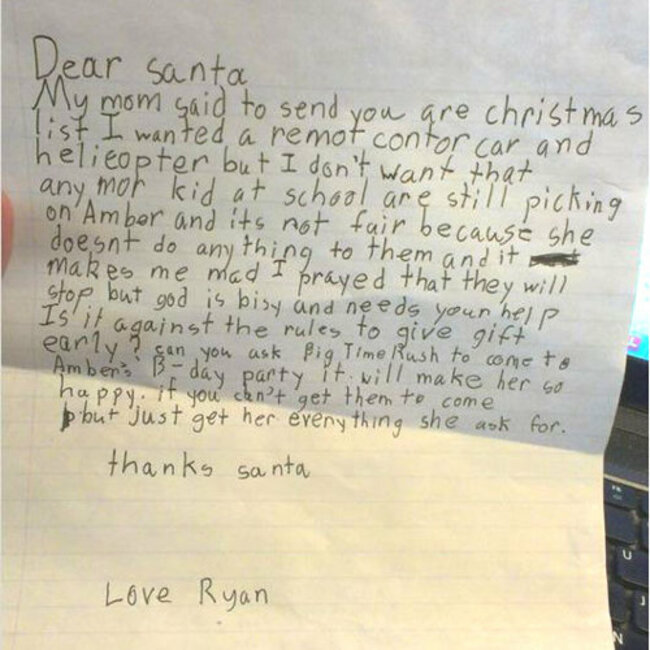 Dear santa
My mom said to send you are christmas
list I wanted a remot contor car and
helicopter but I don't want that
any mor kid at school are still picking
on Amber and its not fair because she
doesnt do anything to them and it
makes me mad I prayed that they will
stop but god is bisy and needs your help
Is it against the rules to give gift
early? can you ask Big Time Rush to come to
Amber's B-day party it will make her so
happy. if you can't get them to come
but just get her everything she ask for.
thanks santa
Love Ryan
U
J
N